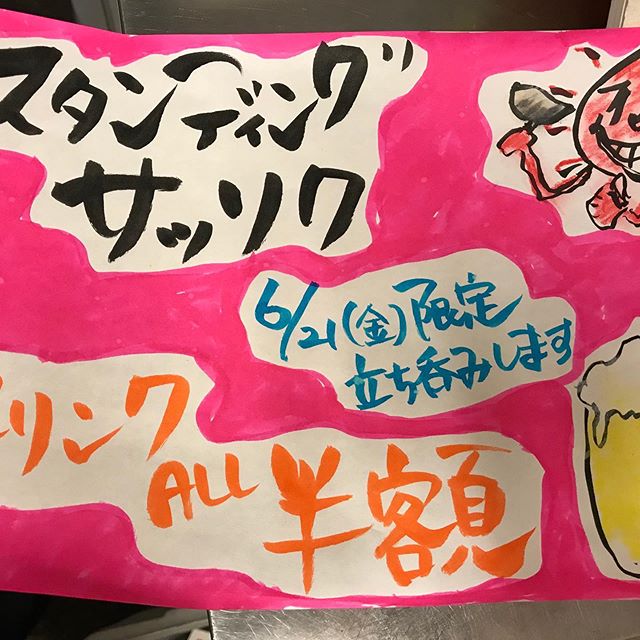 スタンディング
サッソク
6/21(金)限定
立ち呑みします
リンク
ALL半額